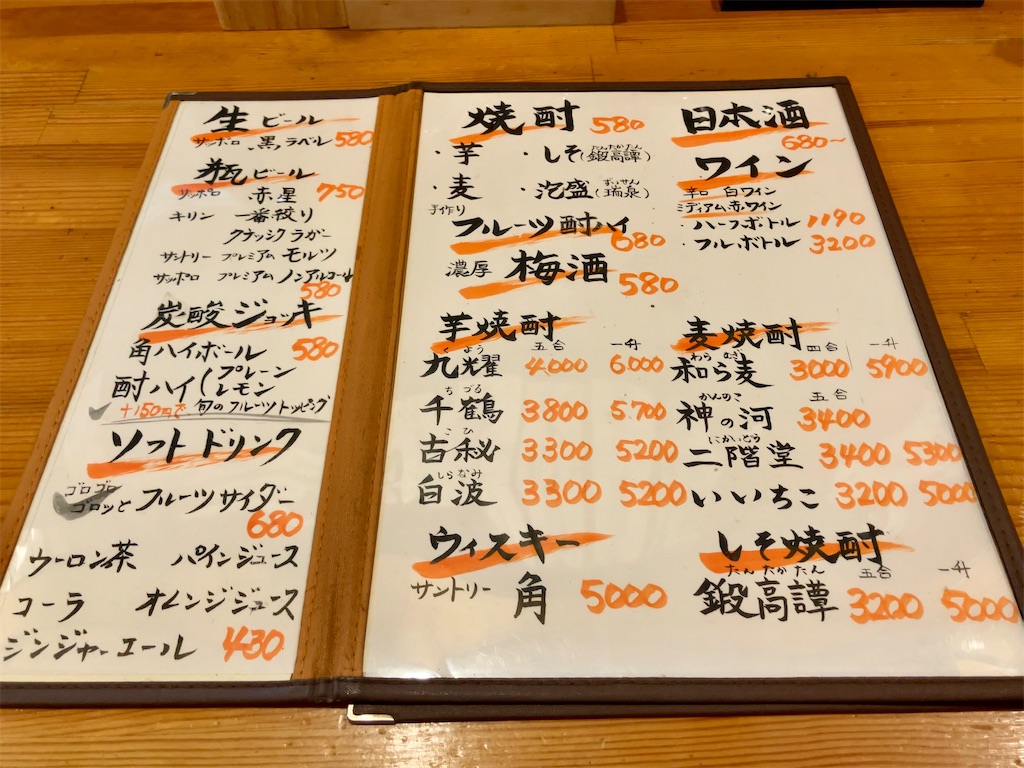 生ビール
サッポロ 黒ラベル 580
瓶ビール
サッポロ 赤星 750
キリン 一番絞り
クラシックラガー
サントリー プレミアム モルツ
サッポロ プレミアム ノンアルコール
580
炭酸ジョッキ
角ハイボール 580
酎ハイ(プレーン
レモン
+150円で 旬のフルーツトッピング
ソフトドリンク
ゴロゴロ
ゴロッとフルーツサイダー
680
ウーロン茶 パインジュース
コーラ オレンジジュース
ジンジャーエール 430
焼酎 580
・芋 ・しそ(鍛高譚)
たんたかたん
・麦 ・泡盛(瑞泉)
ずいせん
手作り
フルーツ酎ハイ
680
濃厚 梅酒 580
芋焼酎
五合 一升
九耀 4,000 6,000
くよう
千鶴 3800 5,700
ちづる
古秘 3300 5200
こひ
白波 3300 5200
しらなみ
ウィスキー
サントリー 角 5000
日本酒
680〜
ワイン
辛口 白ワイン
ミディアム赤ワイン
・ハーフボトル 1190
・フルボトル 3200
麦焼酎
四合 一升
和ら麦 3000 5900
わらむぎ
五合
神の河 3400
かんのこ
二階堂 3400 5300
にかいどう
いいちこ 3200 5000
しそ焼酎
五合 一升
たんたかたん
鍛高譚 3200 5000